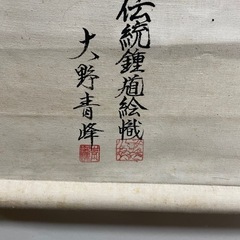 伝統鍾馗絵幟
大野青峰